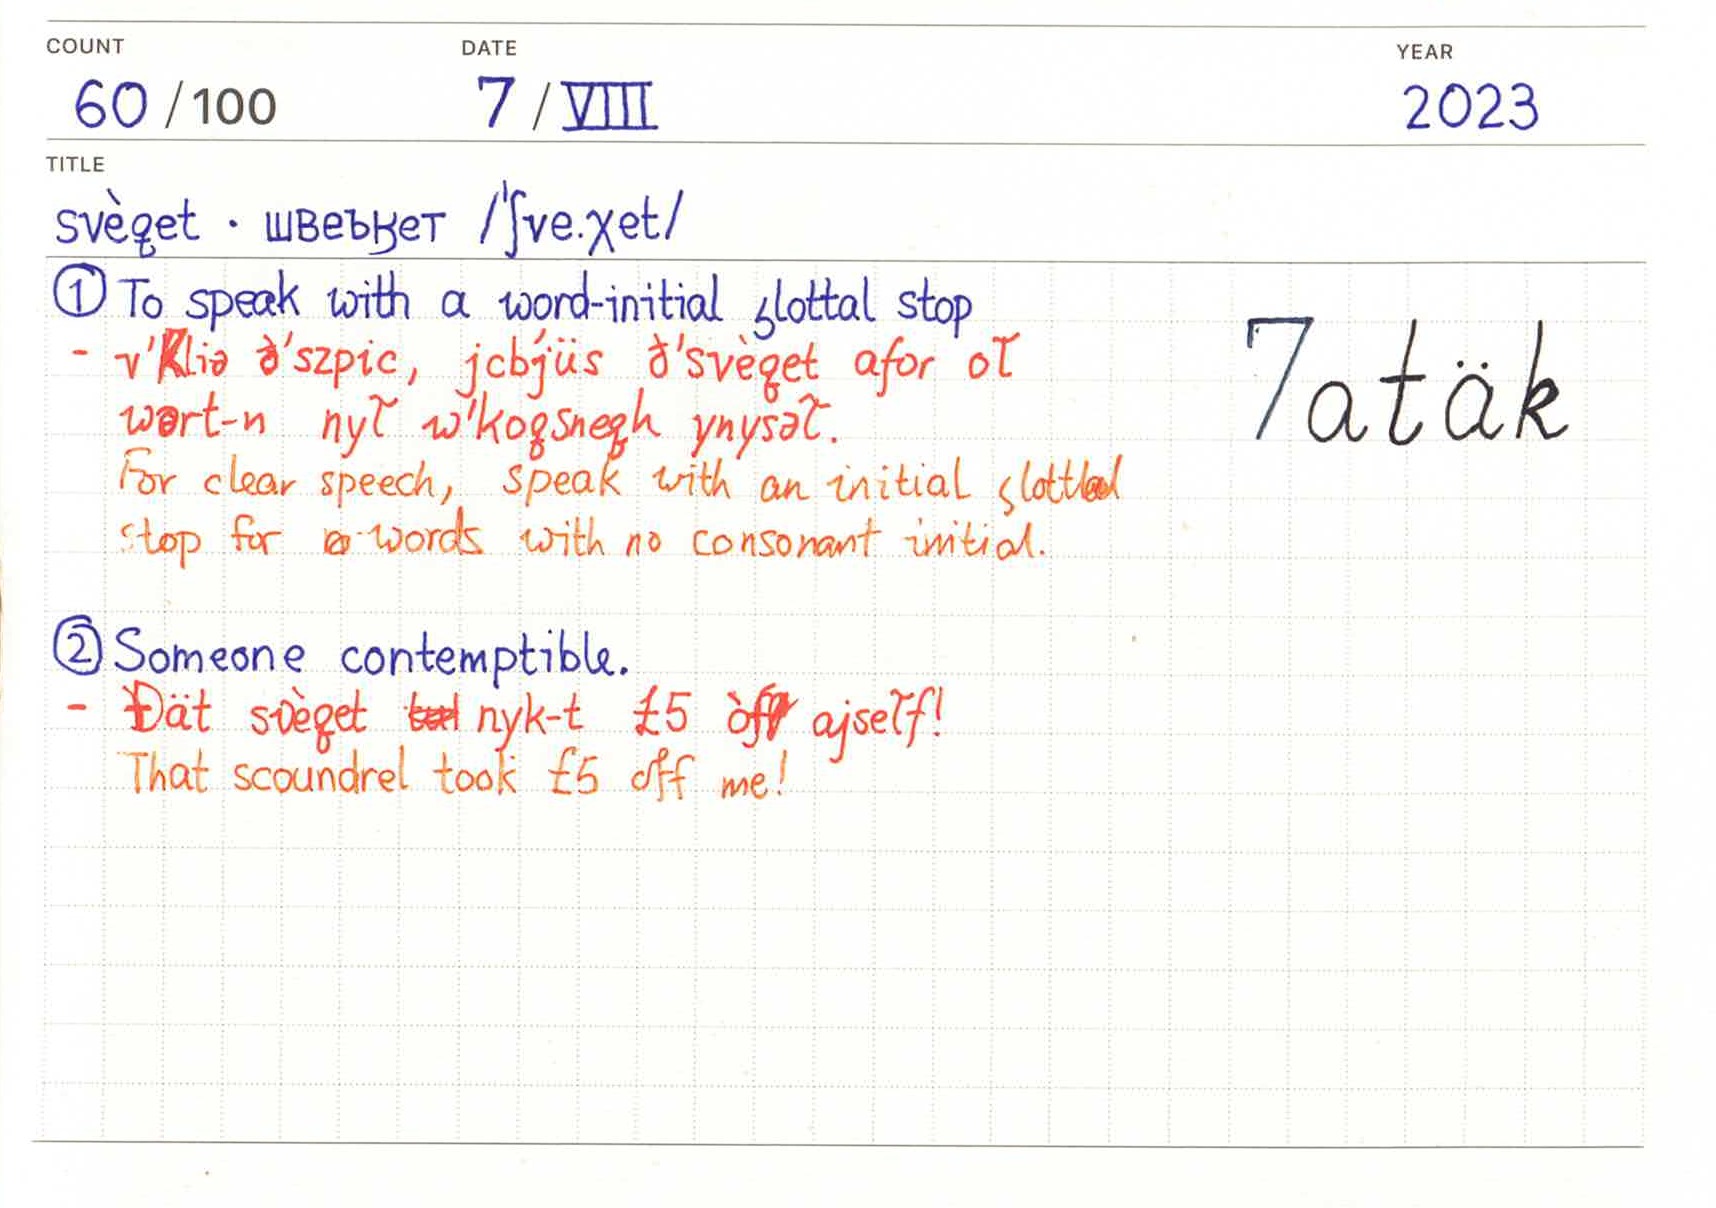 COUNT DATE YEAR
60 /100 7 / VIII 2023
TITLE
svèqet · швеъӄет /ˈʃve.χet/
① To speak with a word-initial glottal stop
- v'Kliə ð'szpic, jcbj́üs ð'svèqet afor ol̃
wort-n nyl̃ w'koqsneqh ynysəl̃.
For clear speech, speak with an initial glottal
stop for words with no consonant initial.
7atäk
② Someone contemptible.
- Ðät svèqet nyk-t £5 òff ajsel̃f!
That scoundrel took £5 off me!